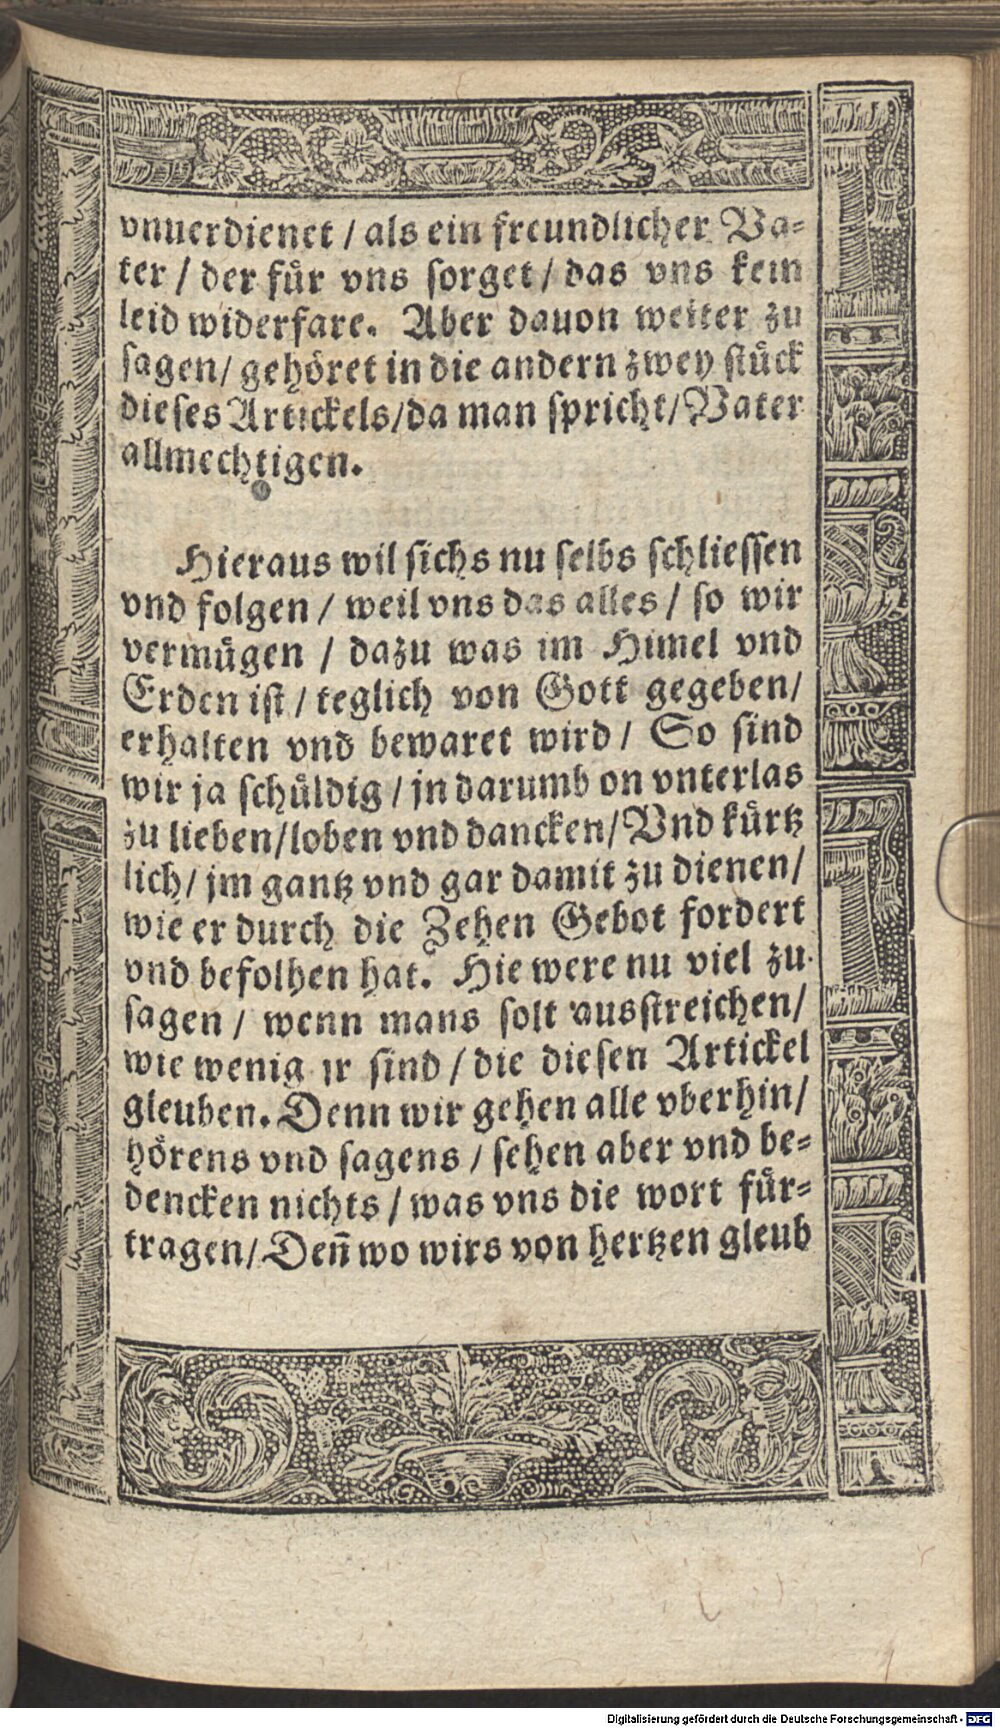 vnuerdienet / als ein freundlicher Va⸗
ter / der für vns sorget / das vns kein
leid widerfare. Aber dauon weiter zu
sagen / gehöret in die andern zwey stück
dieses Artickels / da man spricht / Vater
allmechtigen.
Hieraus wil sichs nu selbs schliessen
vnd folgen / weil vns das alles / so wir
vermügen / dazu was im Himel vnd
Erden ist / teglich von Gott gegeben /
erhalten vnd bewaret wird / So sind
wir ja schüldig / jn darumb on vnterlas
zu lieben / loben vnd dancken / Vnd kürtz
lich / jm gantz vnd gar damit zu dienen /
wie er durch die Zehen Gebot fordert
vnd befolhen hat. Hie were nu viel zu
sagen / wenn mans solt ausstreichen /
wie wenig jr sind / die diesen Artickel
gleuben. Denn wir gehen alle vberhin /
hörens vnd sagens / sehen aber vnd be⸗
dencken nichts / was vns die wort für⸗
tragen / Deñ wo wirs von hertzen gleub
Digitalisierung gefördert durch die Deutsche Forschungsgemeinschaft - DFG